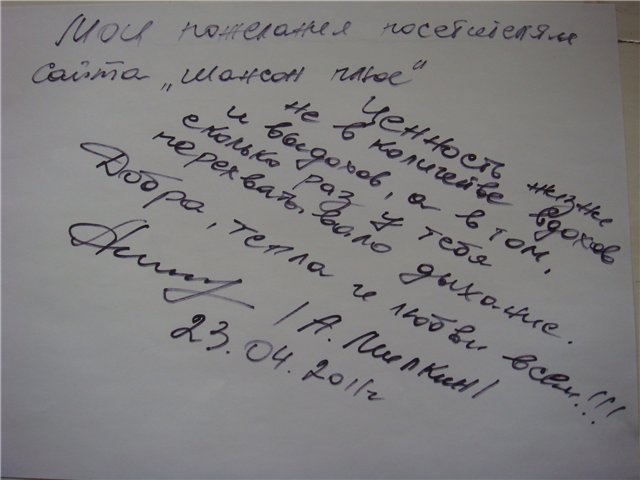 Мои пожелания посетителям
сайта „Шансон плюс"
Ценность жизни
не в количестве вдохов
и выдохов, а в том,
сколько раз у тебя
перехватывало дыхание.
Добра, тепла и любви всем!!!
23.04.2011г